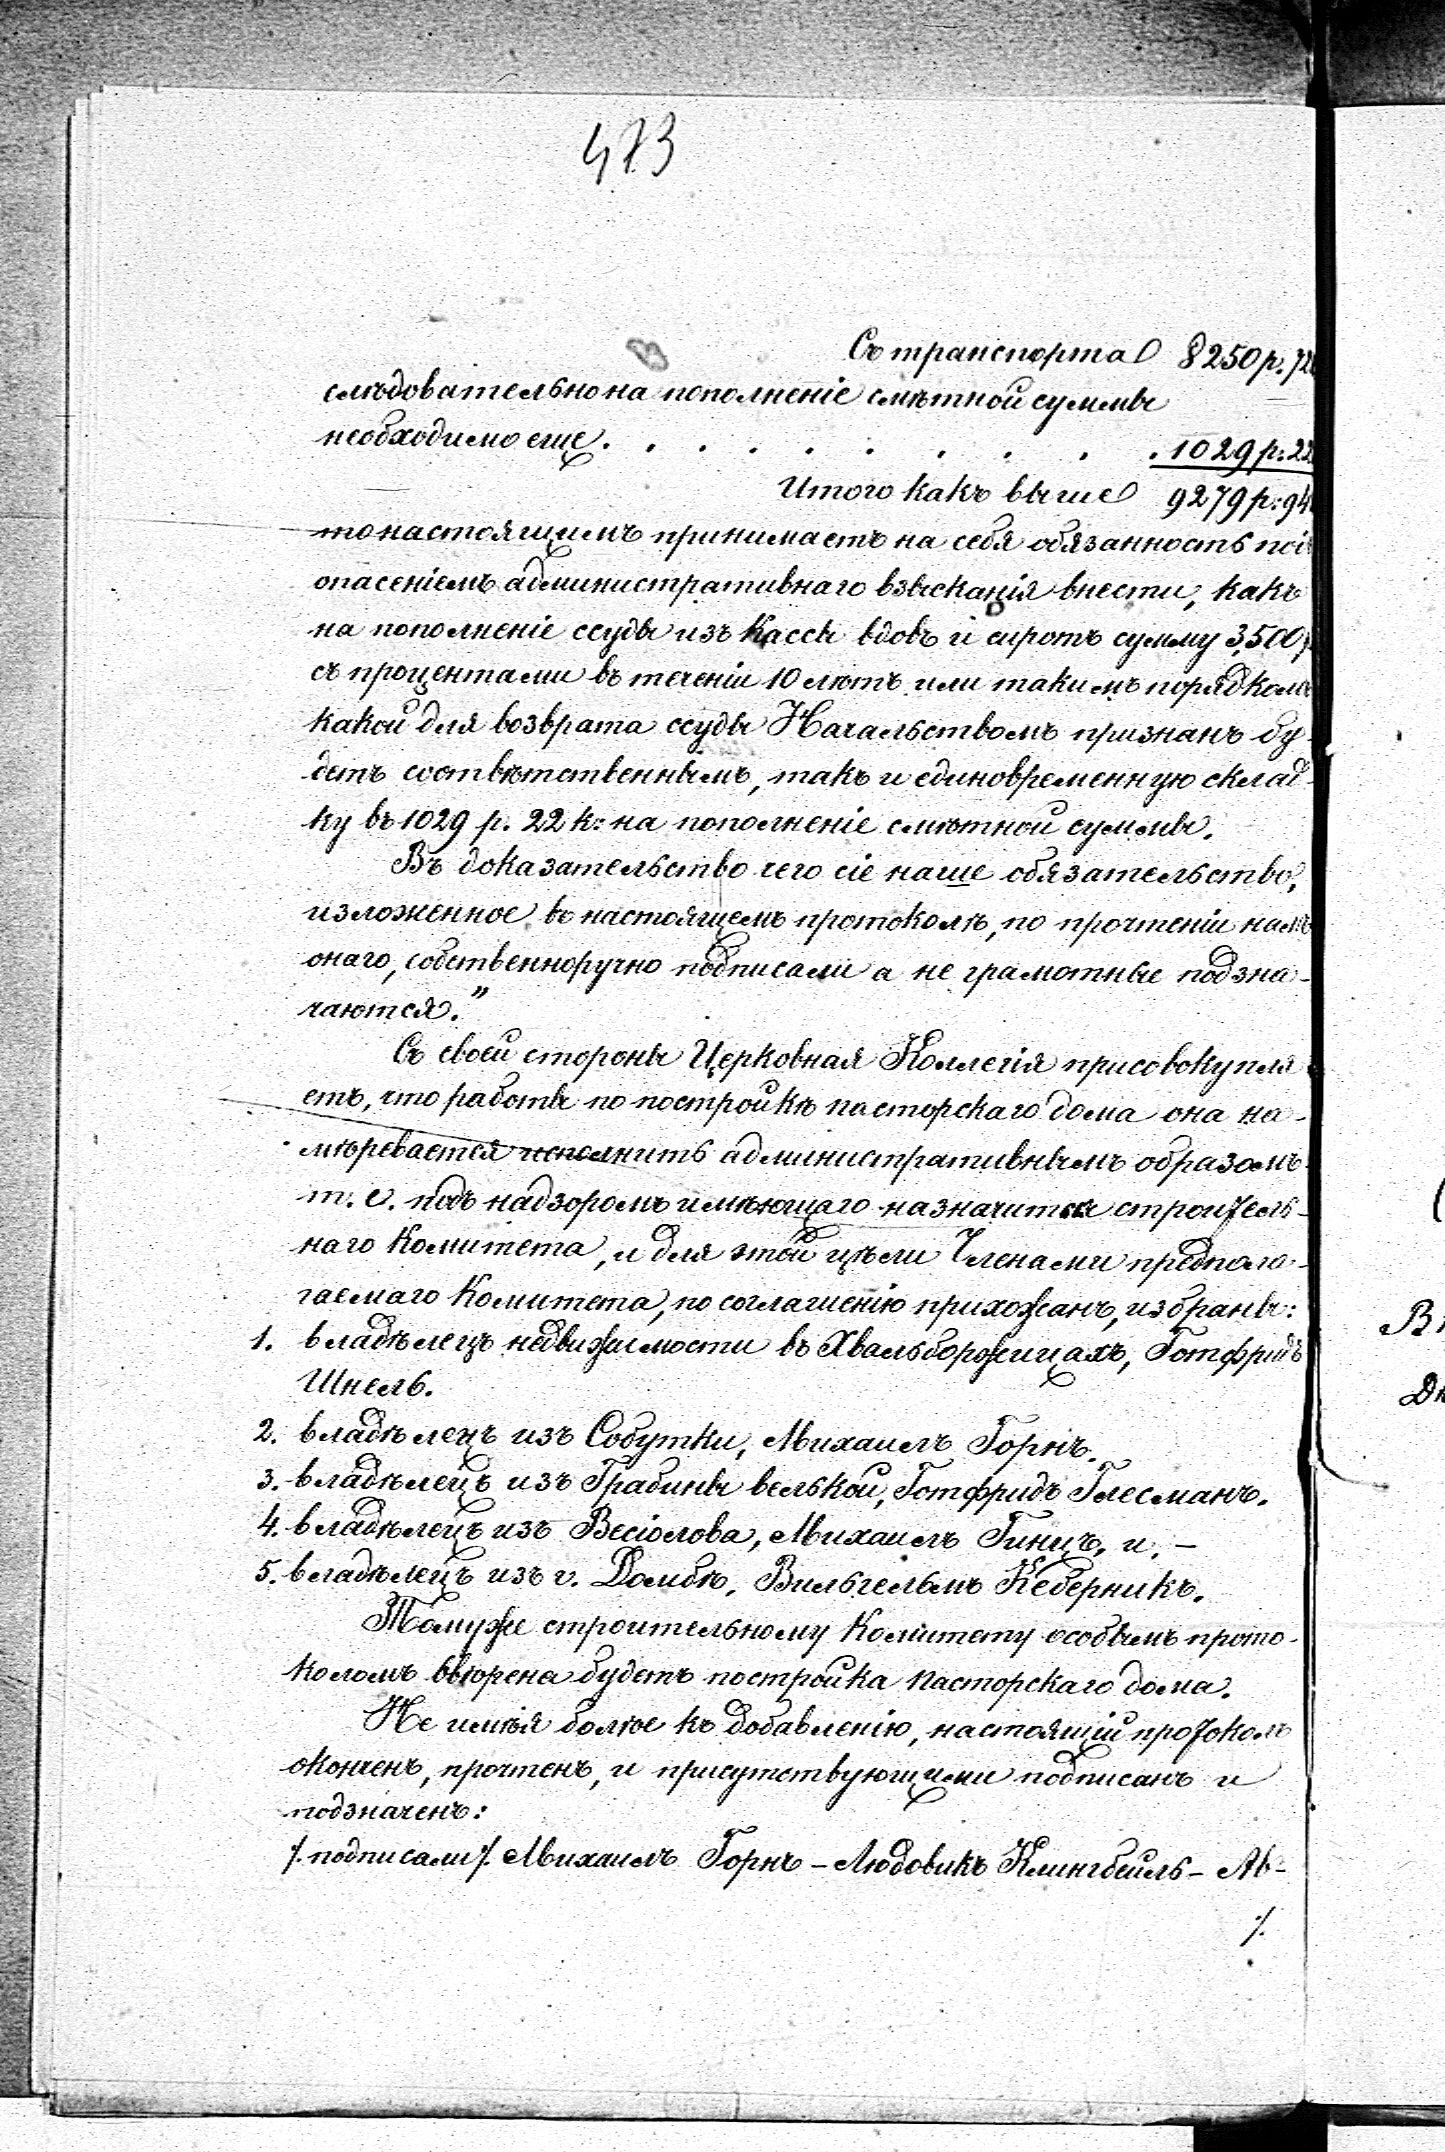 473
Съ транспорта 8250 р. 72
слѣдовательно на пополненіе смѣтной суммы
необходимо еще . . . . . . . . . . 1029 р. 22
Итого какъ выше 9279 р. 94
то настоящимъ принимаетъ на себя обязанность подъ
опасеніемъ административнаго взысканія внести, какъ
на пополненіе ссуды изъ Кассы вдовъ и сиротъ сумму 3,500 р.
съ процентами въ теченіи 10 лѣтъ или такимъ порядкомъ
какой для возврата ссуды Начальствомъ признанъ бу-
детъ соотвѣтственнымъ, такъ и единовременную склад-
ку въ 1029 р. 22 к: на пополненіе смѣтной суммы.
Въ доказательство чего сіе наше обязательство,
изложенное въ настоящемъ протоколѣ, по прочтеніи намъ
онаго, собственноручно подписали а не грамотные подзна-
чаются."
Съ своей стороны Церковная Коллегія присовокупля
етъ, что работы по постройкѣ пасторскаго дома она на-
мѣревается исполнить административнымъ образомъ
т. е. подъ надзоромъ имѣющаго назначится строитель-
наго Комитета, и для этой цѣли Членами предпола-
гаемаго Комитета, по соглашенію прихожанъ, избраны:
1. владѣлецъ недвижимости въ Хвальборжицахъ, Готфридъ
Шнель.
2. владѣлецъ изъ Собутки, Михаилъ Горнъ.
3. владѣлецъ изъ Грабины велькой, Готфридъ Глесманъ.
4. владѣлецъ изъ Весіолова, Михаилъ Гинцъ, и. –
5. владѣлецъ изъ г. Домбѣ, Вильгельмъ Кеберникъ.
Томуже строительному Комитету особымъ прото-
коломъ ввѣрена будетъ постройка пасторскаго дома.
Не имѣя болѣе къ добавленію, настоящій протоколъ
оконченъ, прочтенъ, и присутствующими подписанъ и
подзначенъ:
/. подписали /. Михаилъ Горнъ – Людовикъ Клингбейль – Ав-
·/.